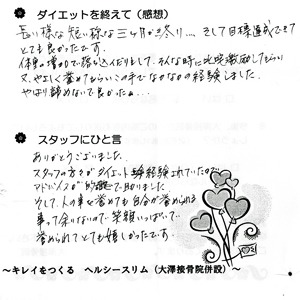 ダイエットを終えて（感想）
長い様な短い様な三ヶ月が終り… そして目標達成できて
とても良かったです。
又、やさしく誉めてもらい
やはり諦めないで良かったぁ…
スタッフにひと言
ありがとうございました。
スタッフの方々がダイエット経験されていたので
アドバイスが的確で助かりました。
そして、人の事を誉めても自分が誉められる
事って余りないので 笑顔いっぱいで
誉められてとても嬉しかったです。
～キレイをつくる ヘルシースリム（大澤接骨院併設）～